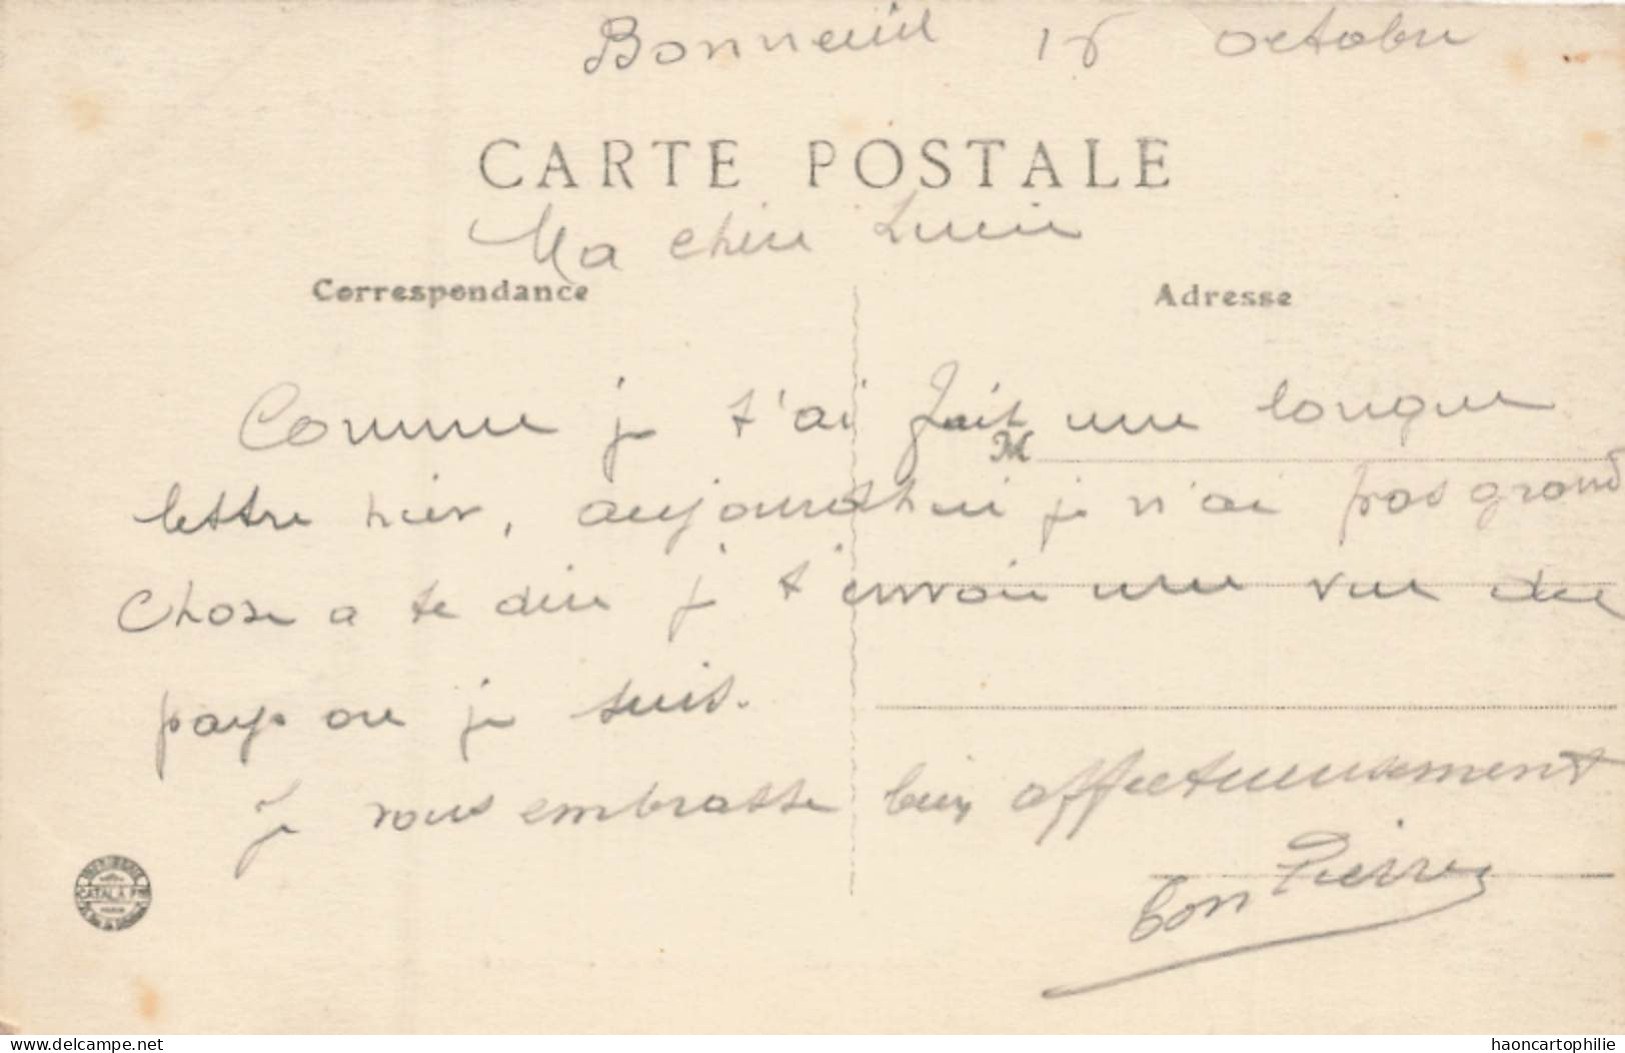 Bonneuil 15 octobre
CARTE POSTALE
Ma chère Lucie
Correspondance
Adresse
Comme je t'ai fait une longue
M
lettre hier, aujourdhui je n'ai pas grand
chose a te dire je t'envoie une vue du
pays ou je suis.
Je vous embrasse bien affectueusement
ton Pierre
IMPRIMERIE
CATALA FRES
PARIS
www.delcampe.net
haoncartophilie